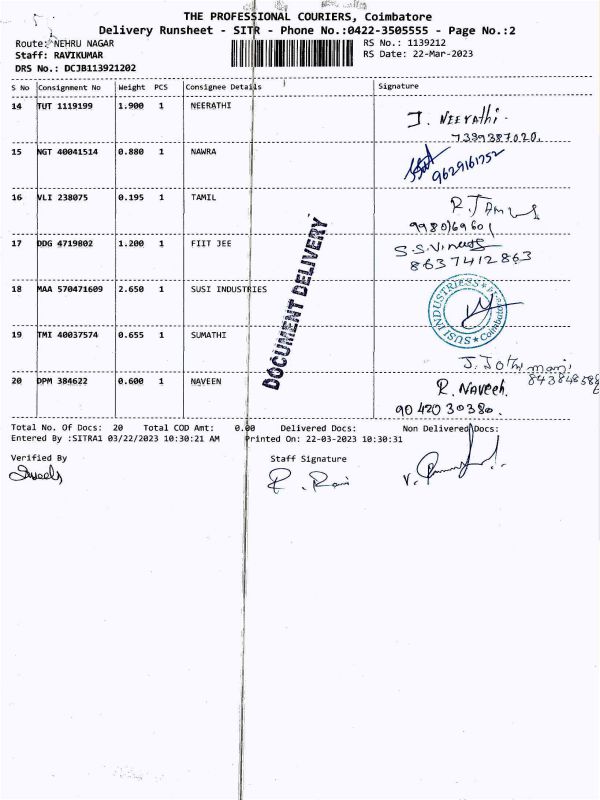 THE PROFESSIONAL COURIERS, Coimbatore
Delivery Runsheet - SITR - Phone No.:0422-3505555 - Page No.:2
Route: NEHRU NAGAR
RS No.: 1139212
Staff: RAVIKUMAR
RS Date: 22-Mar-2023
DRS No.: DCJB113921202
S No Consignment No Weight PCS Consignee Details Signature
14 TUT 1119199 1.900 1 NEERATHI J. NEERAthi.
7339387020.
15 NGT 40041514 0.880 1 NAWRA
9629161752
16 VLI 238075 0.195 1 TAMIL
9980169601
17 DDG 4719802 1.200 1 FIIT JEE S.S.Vineeth
8637412863
18 MAA 570471609 2.650 1 SUSI INDUSTRIES
SUSI INDUSTRIES Coimbatore
19 TMI 40037574 0.655 1 SUMATHI
J. Jothimani
20 DPM 384622 0.600 1 NAVEEN R. Naveen.
9042030380.
DOCUMENT DELIVERY
Total No. Of Docs: 20 Total COD Amt: 0.00 Delivered Docs: Non Delivered Docs:
Entered By :SITRA1 03/22/2023 10:30:21 AM Printed On: 22-03-2023 10:30:31
Verified By Staff Signature
R. Ravi